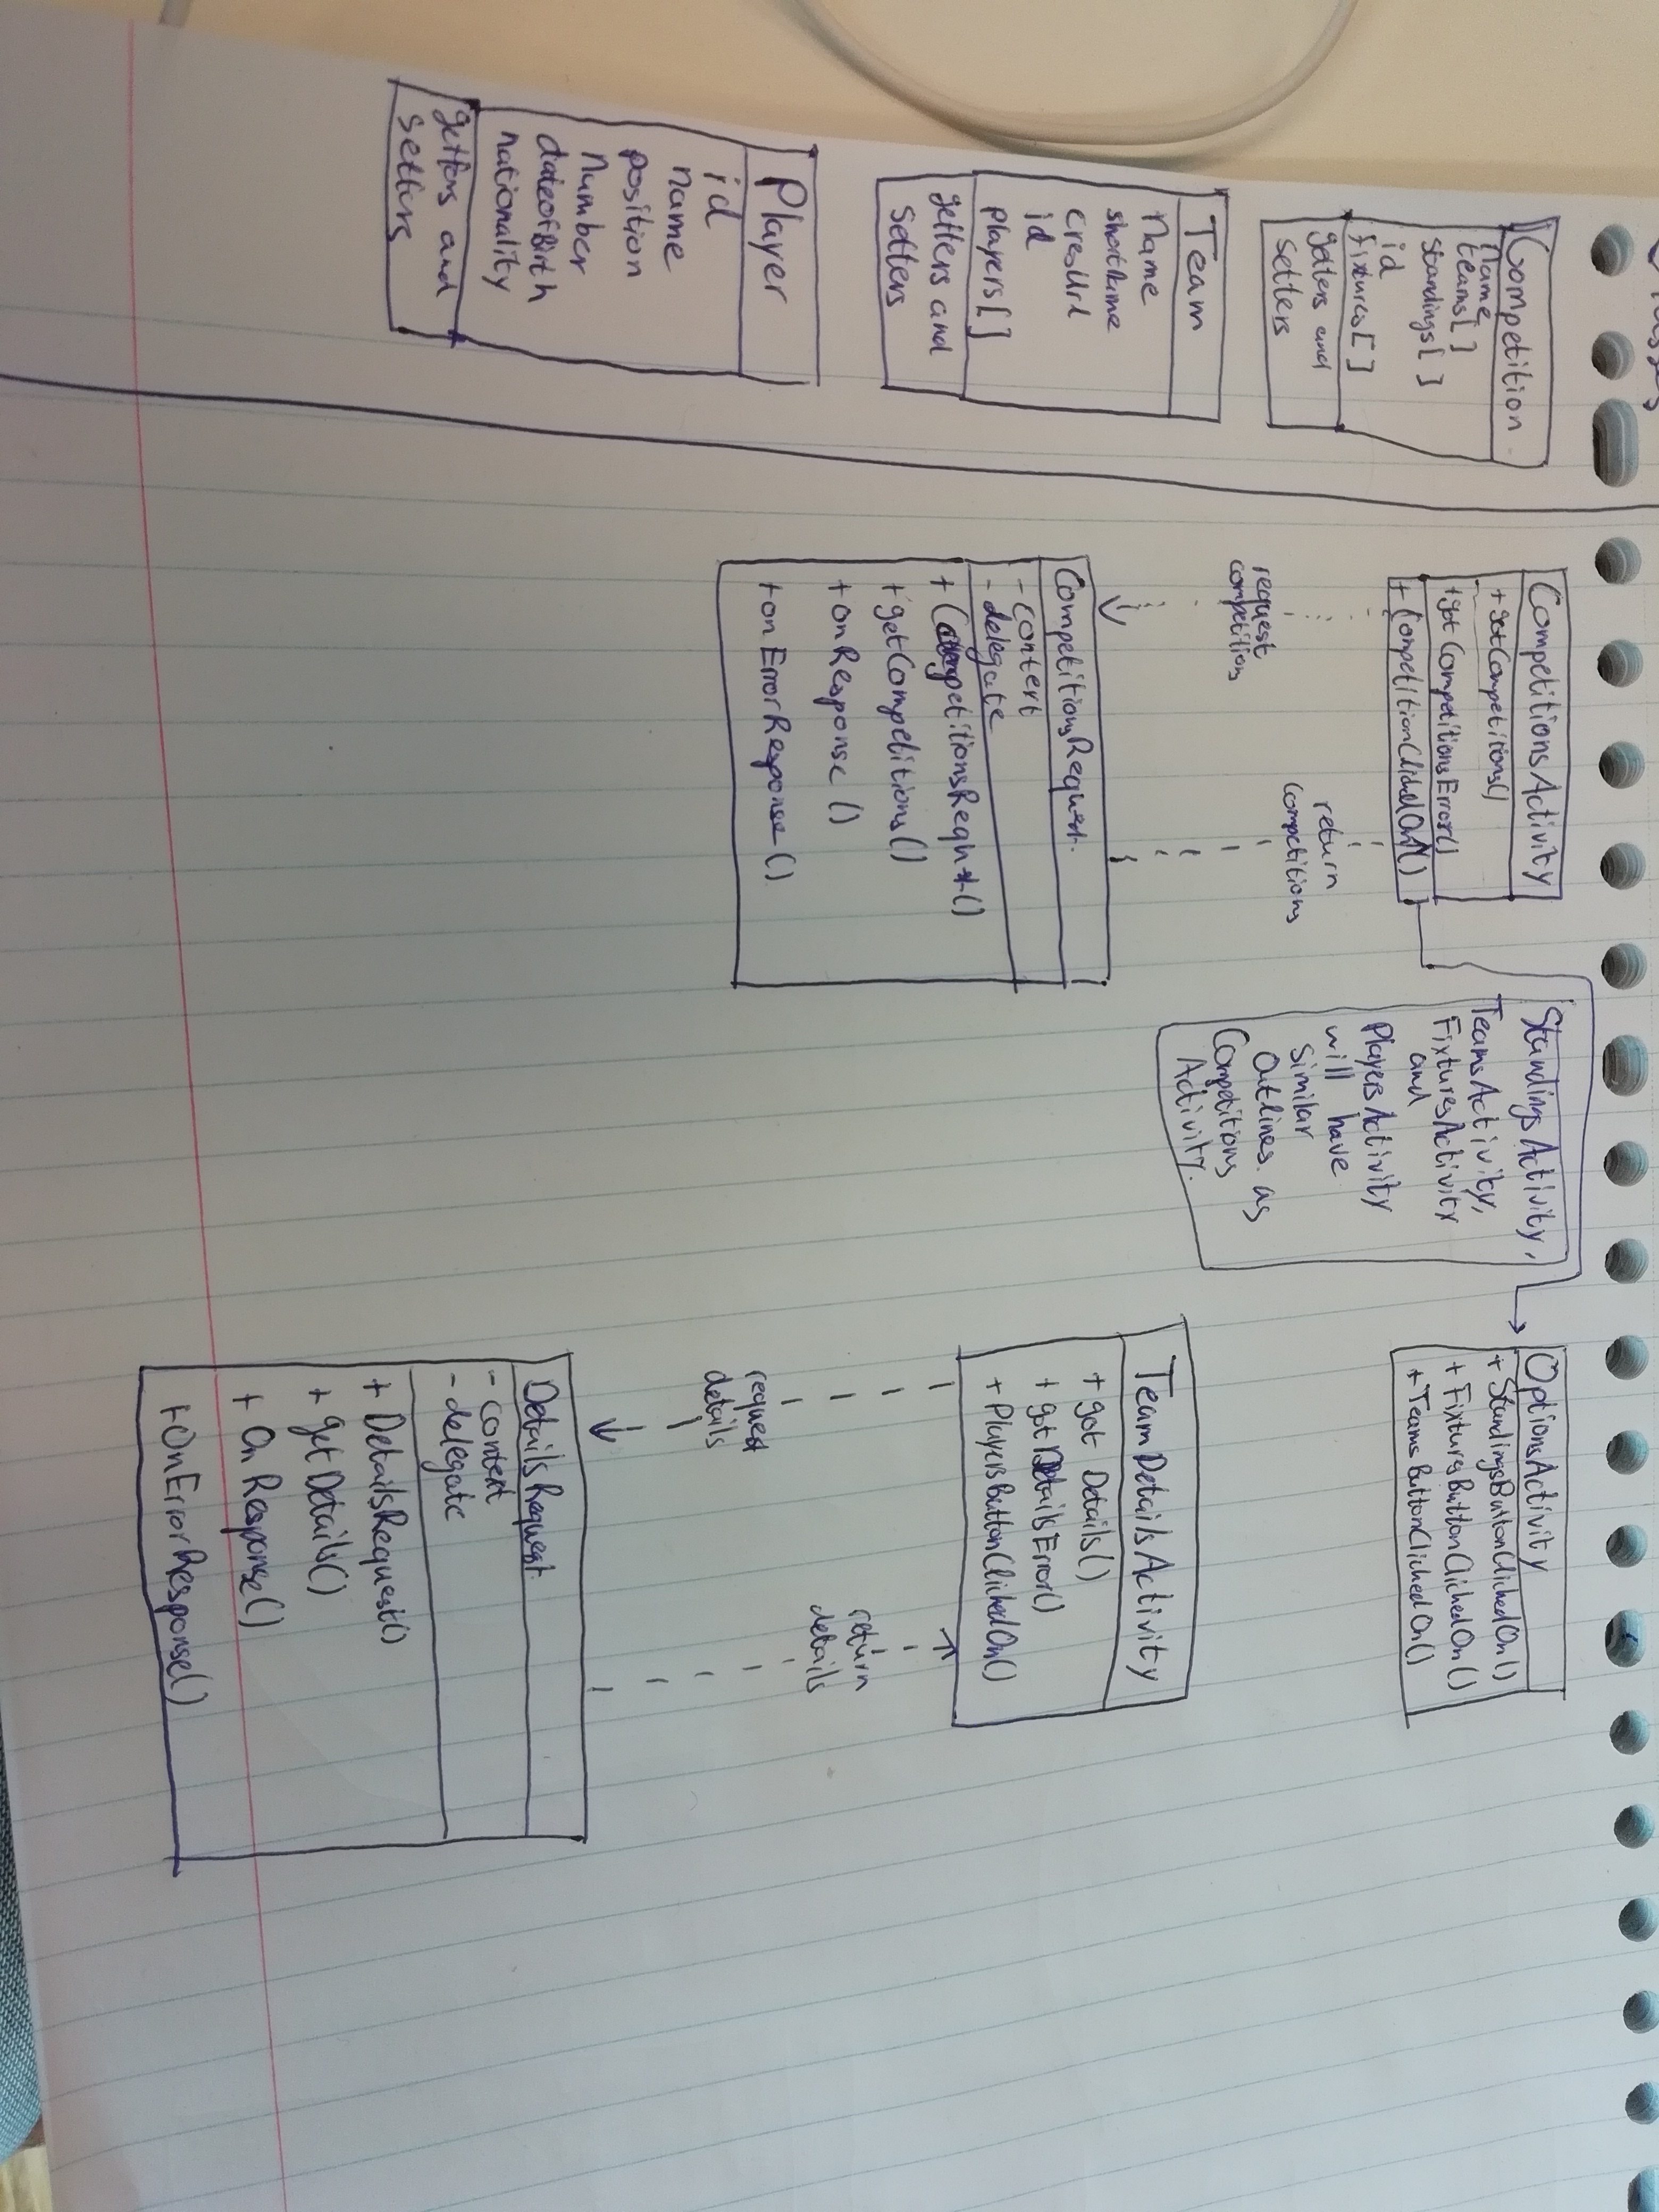 Classes
Competition
name
teams[]
standings[]
id
fixtures[]
getters and
setters
Team
name
shortName
crestUrl
id
players[]
getters and
setters
Player
id
name
position
number
dateofBirth
nationality
getters and
setters
CompetitionsActivity
+gotCompetitions()
+gotCompetitionsError()
+CompetitionClickedOn()
request
competitions
return
competitions
CompetitionsRequest
- context
- delegate
+CompetitionsRequest()
+getCompetitions()
+onResponse()
+onErrorResponse()
StandingsActivity,
TeamsActivity,
FixturesActivity
and
PlayersActivity
will have
similar
outlines as
Competitions
Activity.
OptionsActivity
+StandingsButtonClickedOn()
+FixturesButtonClickedOn()
+TeamsButtonClickedOn()
TeamDetailsActivity
+got Details()
+gotDetailsError()
+PlayersButtonClickedOn()
request
details
return
details
DetailsRequest
- context
- delegate
+ DetailsRequest()
+ getDetails()
+ OnResponse()
+OnErrorResponse()